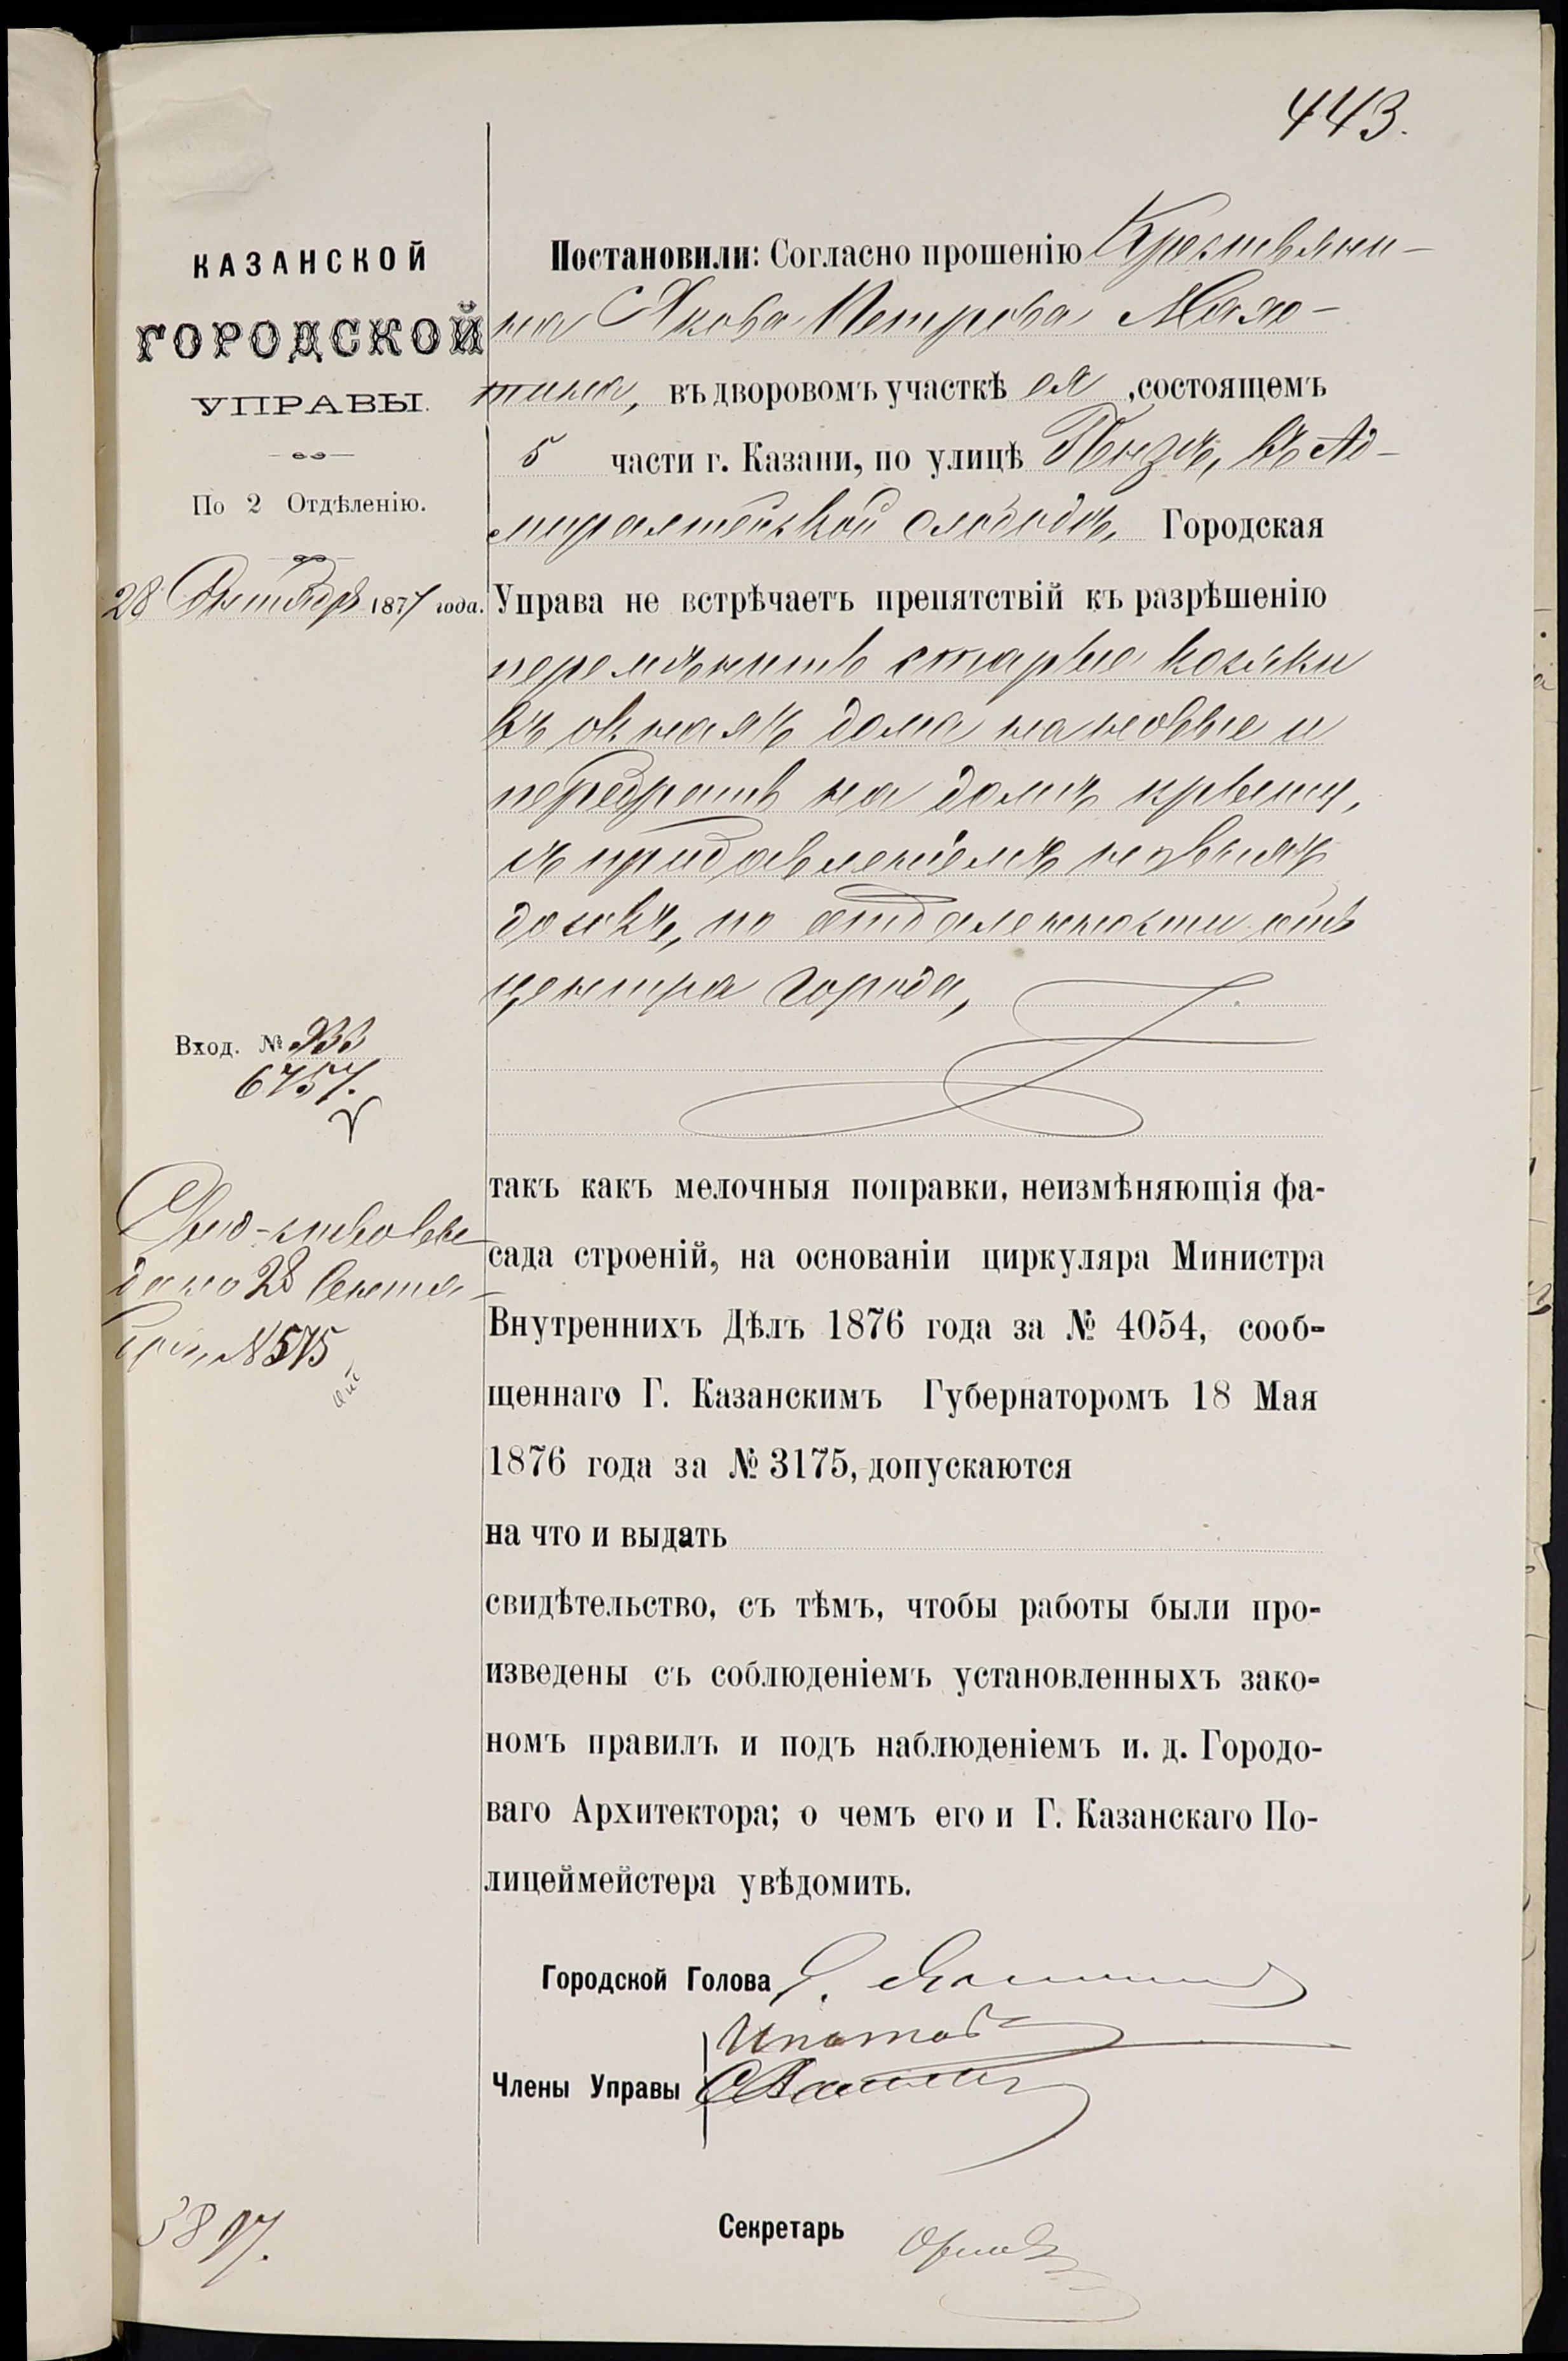 443.
КАЗАНСКОЙ
ГОРОДСКОЙ
УПРАВЫ.
По 2 Отдѣленію.
28 Сентября 1877 года.
Вход. № 933
6757.
Свид-ннство
дано 28 Сентя-
бря, № 575
3897.
Постановили: Согласно прошенію Крестьяни-
на Якова Петрова Маляю-
тина, въ дворовомъ участкѣ ея, состоящемъ
5 части г. Казани, по улицѣ въ Ад-
миралтейской слободѣ, Городская
Управа не встрѣчаетъ препятствій къ разрѣшенію
перемѣнить старые косяки
въ окнахъ дома на новые и
перебрать на домѣ крышу,
съ придавленіемъ новыхъ
досокъ, по отдаленности отъ
центра города,
такъ какъ мелочныя поправки, неизмѣняющія фа-
сада строеній, на основаніи циркуляра Министра
Внутреннихъ Дѣлъ 1876 года за № 4054, сооб-
щеннаго Г. Казанскимъ Губернаторомъ 18 Мая
1876 года за № 3175, допускаются
на что и выдать
свидѣтельство, съ тѣмъ, чтобы работы были про-
изведены съ соблюденіемъ установленныхъ зако-
номъ правилъ и подъ наблюденіемъ и. д. Городо-
ваго Архитектора; о чемъ его и Г. Казанскаго По-
лицеймейстера увѣдомить.
Городской Голова
Ипатов
Члены Управы
Секретарь Орлов